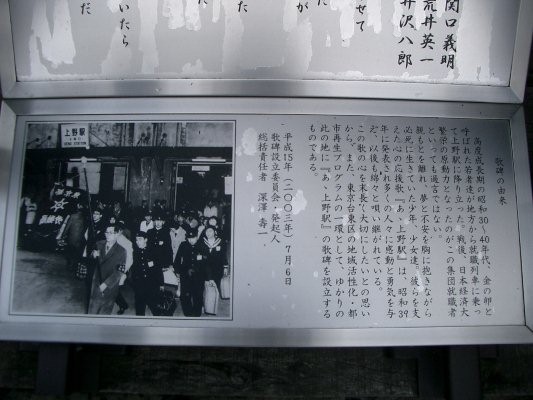 関口義明
荒井英一
井沢八郎
せて
が
た
いたら
だ
歌碑の由来
高度成長期の昭和30〜40年代、金の卵と
呼ばれた若者達が地方から就職列車に乗っ
て上野駅に降り立った。戦後、日本経済大
繁栄の原動力となったのがこの集団就職者
といっても過言ではない。
親もとを離れ、夢と不安を胸に抱きながら
必死に生きていた少年、少女達。彼らを支
えた心の応援歌『あゝ上野駅』は、昭和39
年に発表され多くの人々に感動と勇気を与
え、以後も綿々と唄い継がれている。
この歌の心を末長く大切にしたいとの思い
から、また、東京台東区の地域活性化・都
市再生プログラムの一環として、ゆかりの
此の地に『あゝ上野駅』の歌碑を設立する
ものである。
平成15年(二〇〇三年)7月6日
歌碑設立委員会・発起人
総括責任者 深澤 壽一
上野駅
UENO STATION